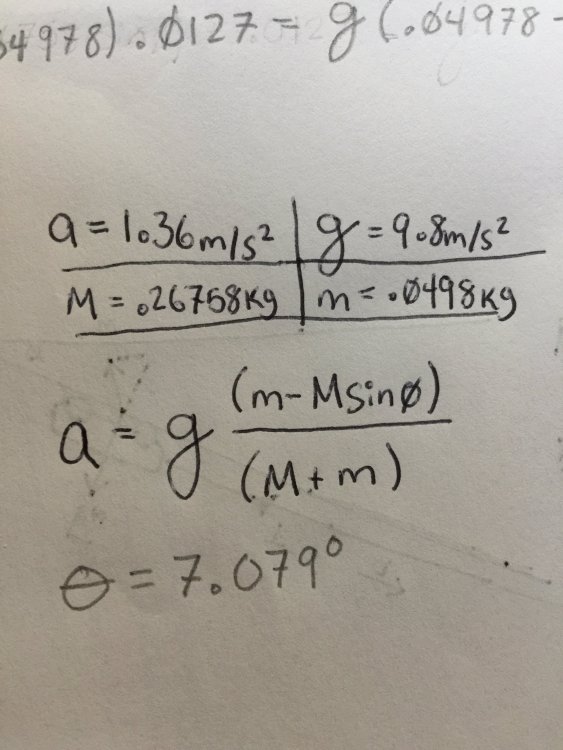 04978) . Ø127 = g (.04978 -
a = 1.36 m/s² | g = 9.8 m/s²
M = .26758 Kg | m = .Ø498 Kg
a = g (m - M sin ø) / (M + m)
θ = 7.079°